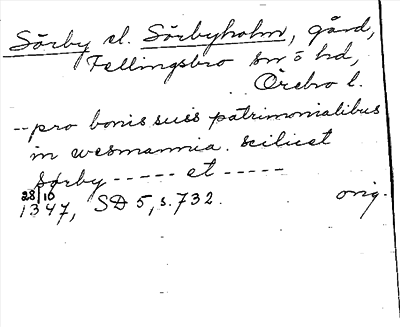 Sörby el. Sörbyholm, gård,
Fellingsbro sn o hd,
Örebro l.
-- pro bonis suis patrimonialibus
in wesmannia. scilicet
Sørby ----- et -----
28/10
1347, SD 5, s. 732. orig.